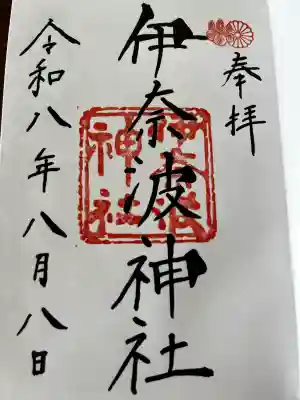 奉拝
伊奈波神社
伊奈波
神社
令和八年八月八日